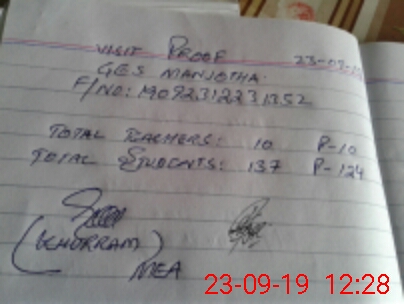 VISIT PROOF 23-09-19
GES MANJOTHA.
F/NO: 19092312231352
TOTAL TEACHERS: 10 P-10
TOTAL STUDENTS: 137 P-124
(KHURRAM)
MEA
23-09-19 12:28